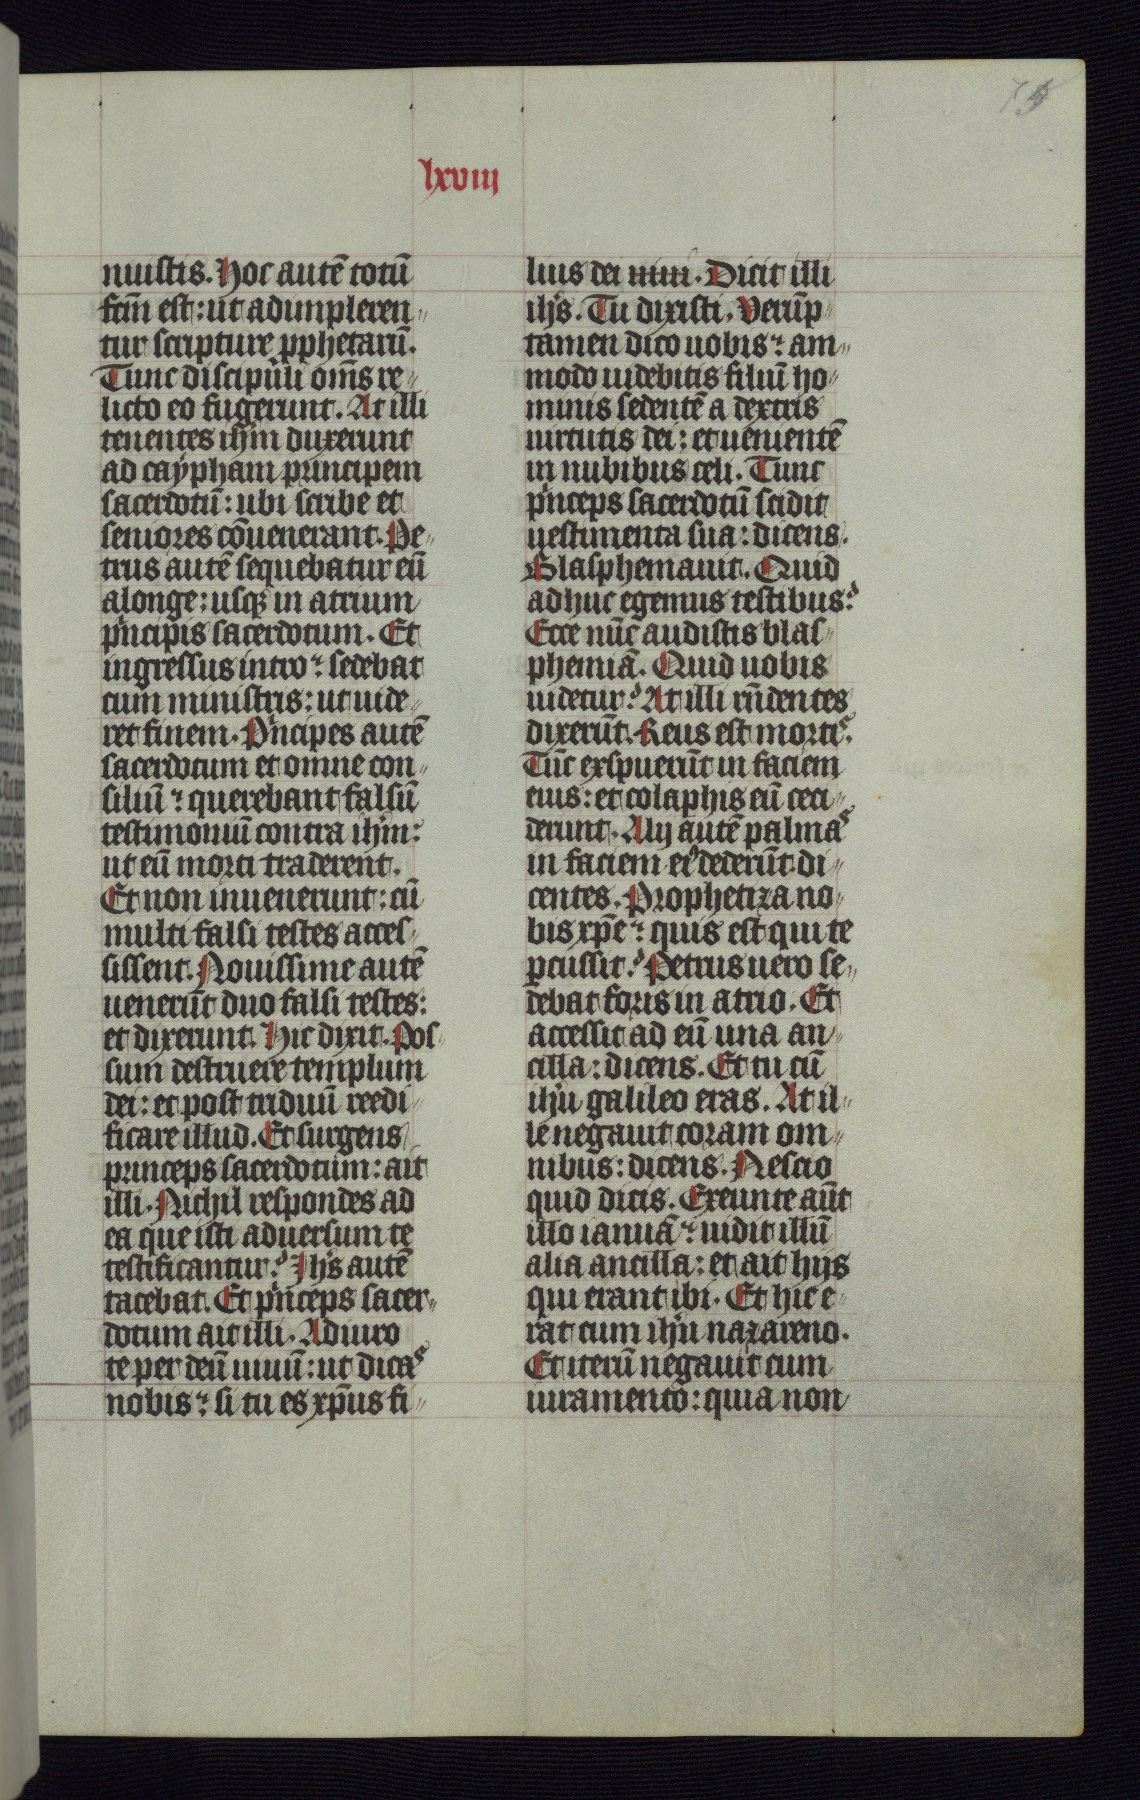 75
lxviii
nuistis. Hoc autē totū
fc̄m est: ut adimpleren-
tur scripture ꝓphetarū.
Tunc discipuli om̄s re-
licto eo fugerunt. At illi
tenentes ih̄m duxerunt
ad caÿpham principem
sacerdotū: ubi scribe et
seniores cōuenerant. Pe-
trus autē sequebatur eū
alonge: usqꝫ in atrium
pͥncipis sacerdotum. Et
ingressus intro: sedebat
cum ministris: ut uide-
ret finem. Pͥncipes autē
sacerdotum et omne con-
siliū: querebant falsū
testimoniū contra ih̄m:
ut eū morti traderent.
Et non inuenerunt: cū
multi falsi testes acces-
sissent. Nouissime autē
uenerūt duo falsi testes:
et dixerunt. Hic dixit. Pos-
sum destruere templum
dei: et post triduū reedi-
ficare illud. Et surgens
princeps sacerdotum: ait
illi. Nichil respondes ad
ea que isti aduersum te
testificantur? Ih̄s autē
tacebat. Et pͥnceps sacer-
dotum ait illi. Adiuro
te per deū uiuū: ut dicaˢ
nobis: si tu es xp̄us fi-
lius dei uiui. Dicit illi
ih̄s. Tu dixisti. Verūp-
tamen dico uobis: am-
modo uidebitis filiū ho-
minis sedentē a dextris
uirtutis dei: et uenientē
in nubibus celi. Tunc
pͥnceps sacerdotū scidit
uestimenta sua: dicens.
Blasphemauit. Quid
adhuc egemus testibus?
Ecce nūc audistis blas-
phemiā. Quid uobis
uidetur? At illi rn̄dentes
dixerūt. Reus est mortiˢ.
Tūc exspuerūt in faciem
eius: et colaphis eū ceci-
derunt. Alij autē palmaˢ
in faciem eiꝰ dederūt di-
centes. Prophetiza no-
bis xp̄e: quis est qui te
ꝑcussit? Petrus uero se-
debat foris in atrio. Et
accessit ad eū una an-
cilla: dicens. Et tu cū
ih̄u galileo eras. At il-
le negauit coram om-
nibus: dicens. Nescio
quid dicis. Exeunte aūt
illo ianuā: uidit illū
alia ancilla: et ait hijs
qui erant ibi. Et hic e-
rat cum ih̄u nazareno.
Et iterū negauit cum
iuramento: quia non